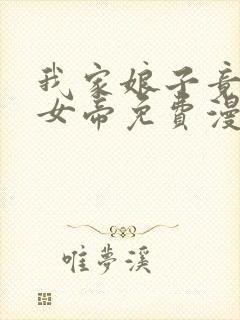 我家娘子竟
女帝免費漫
唯夢溪